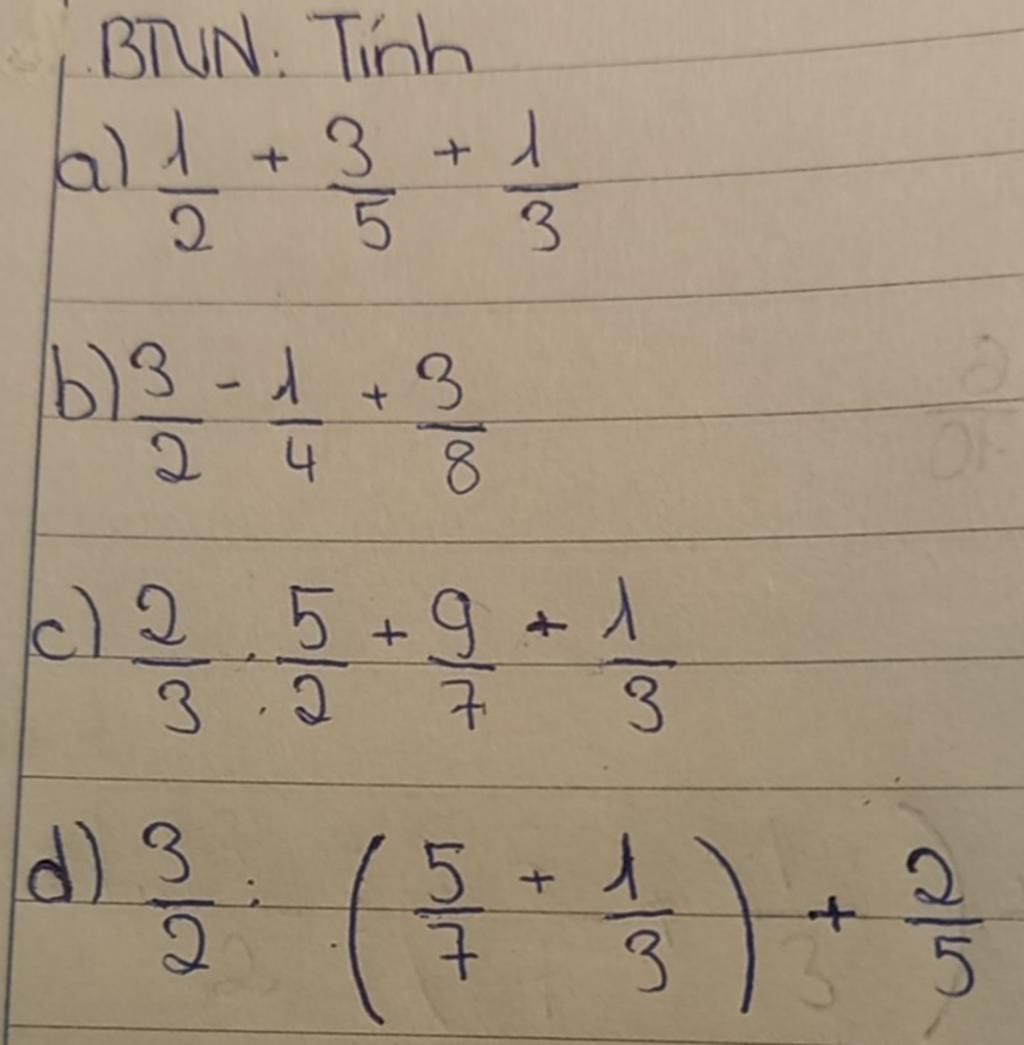 BTVN: Tính
a) 1/2 + 3/5 + 1/3
b) 3/2 - 1/4 + 3/8
c) 2/3 : 5/2 + 9/7 + 1/3
d) 3/2 : (5/7 + 1/3) + 2/5